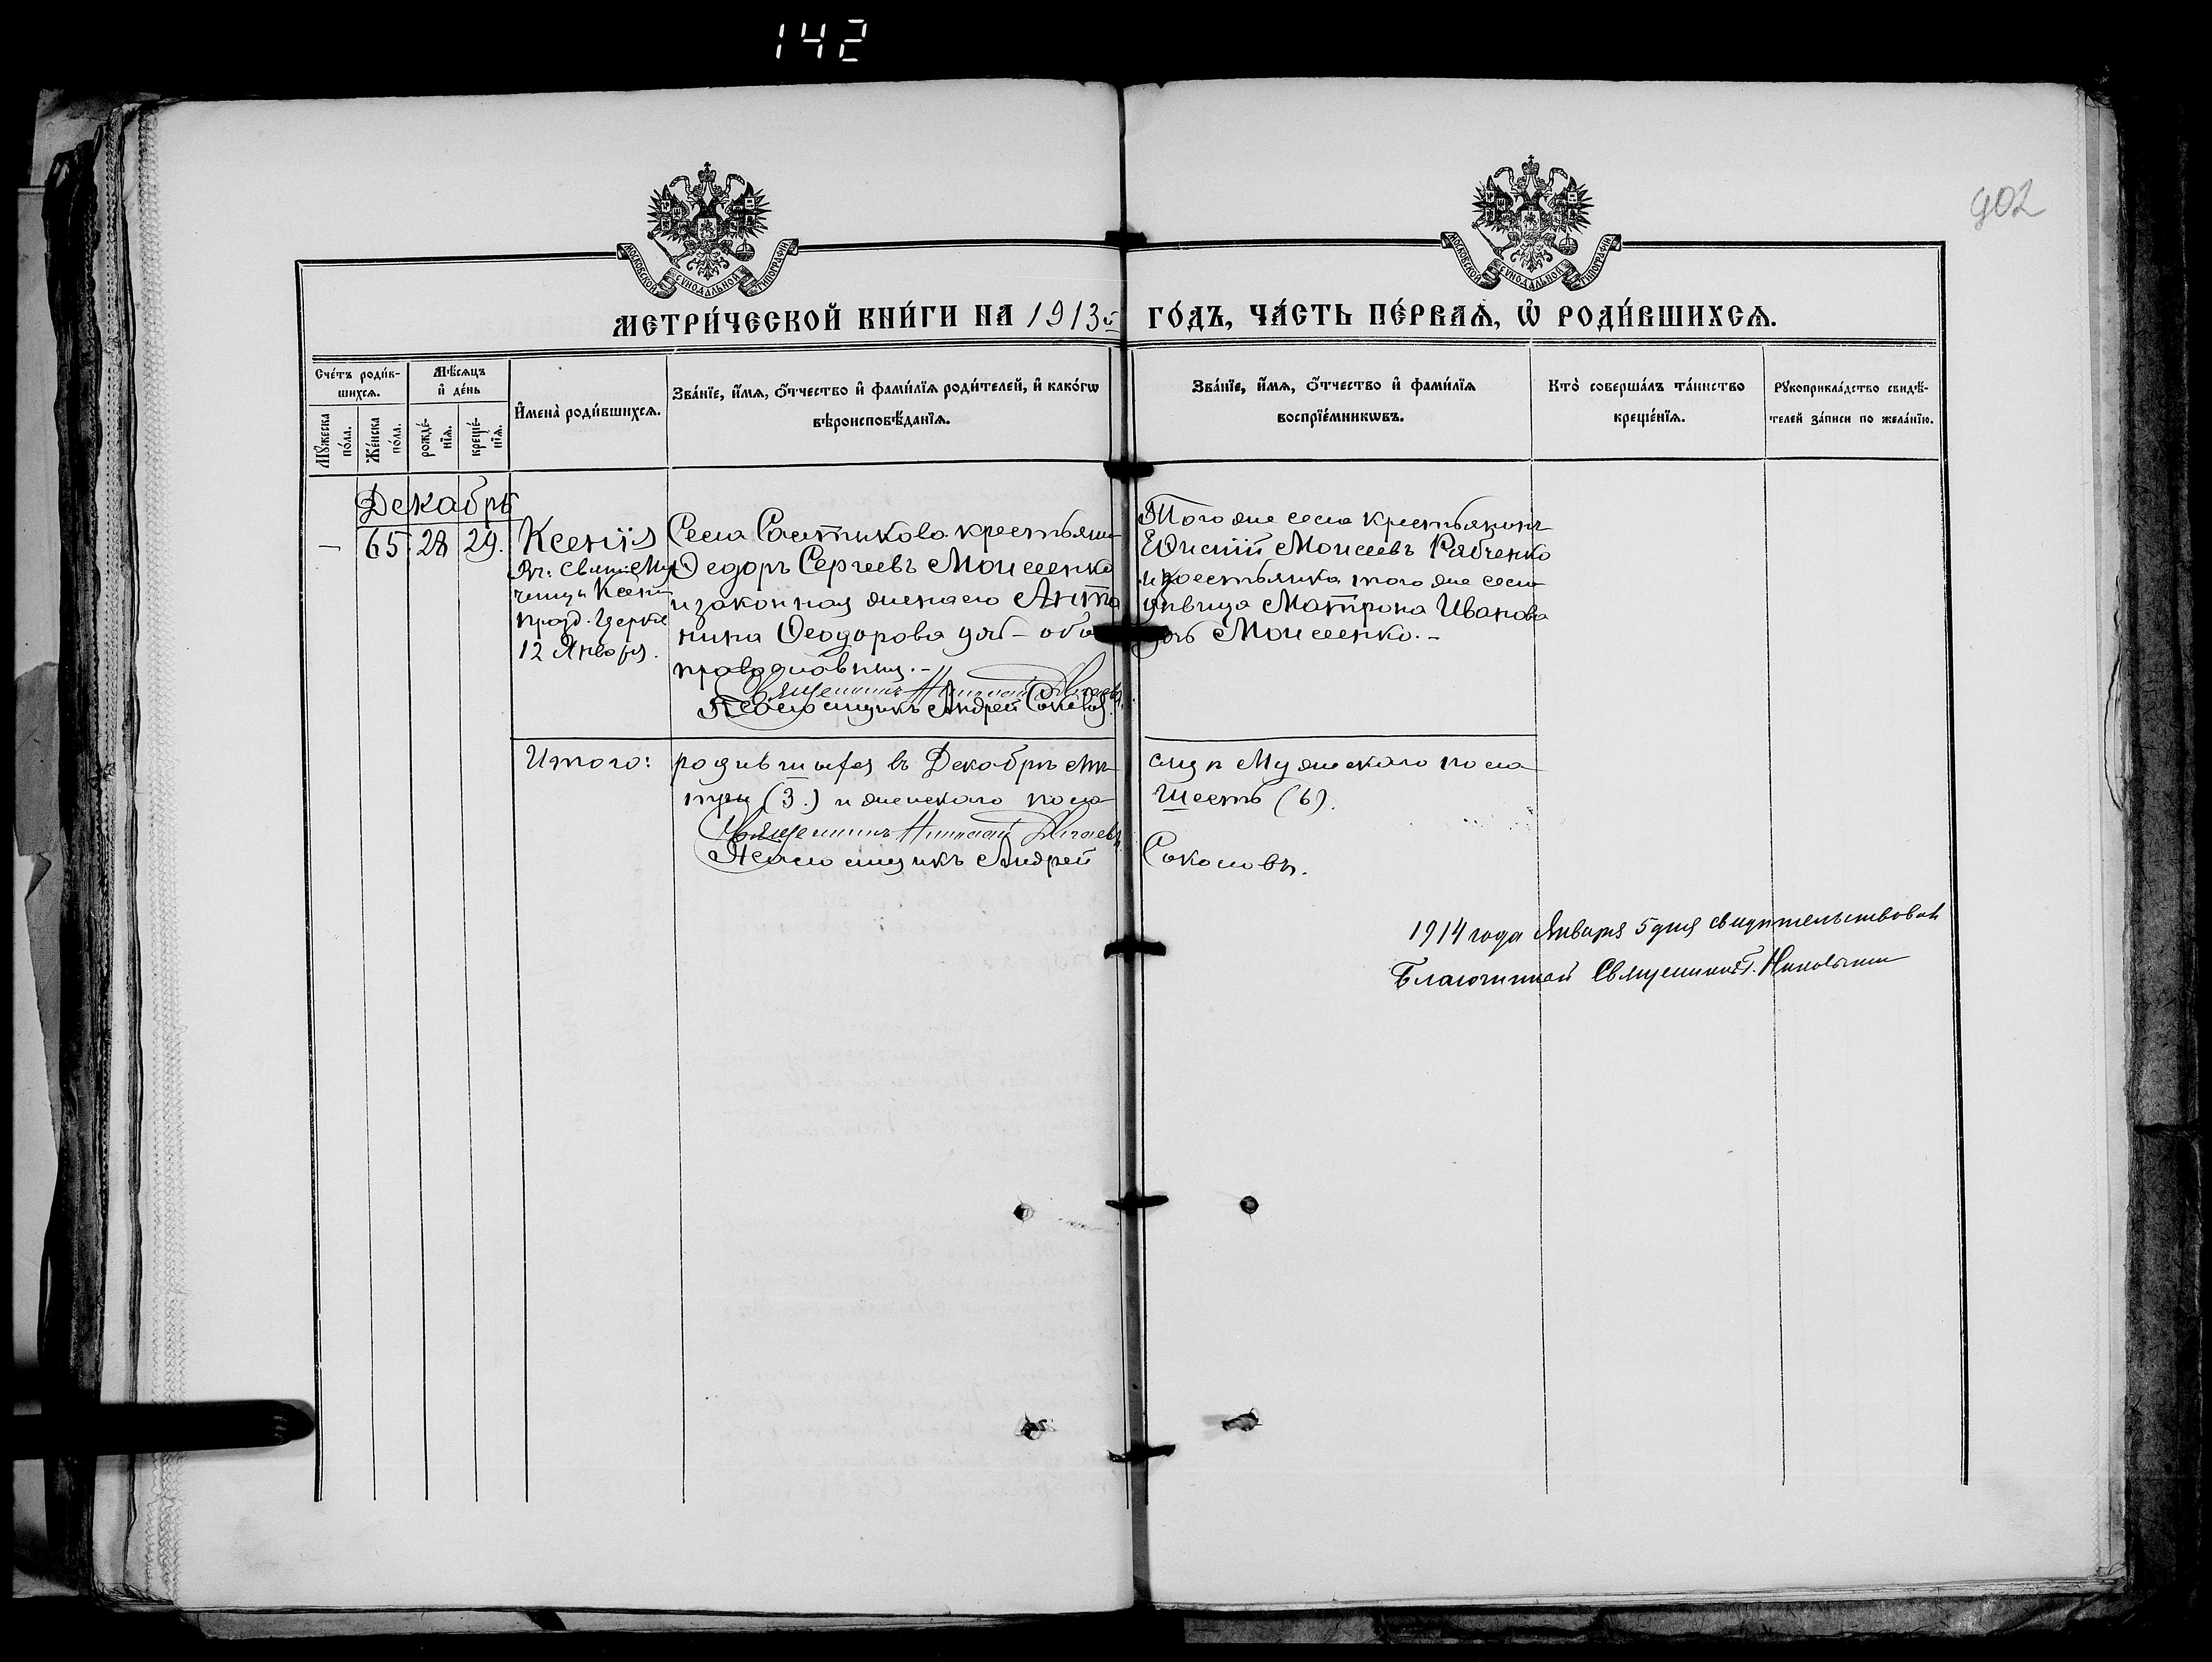 142
902
МОСКОВСКОЙ СѴНОДАЛЬНОЙ ТИПОГРАФІИ
МОСКОВСКОЙ СѴНОДАЛЬНОЙ ТИПОГРАФІИ
МЕТРИ́ЧЕСКОЙ КНИ́ГИ НА 1913й ГО́ДЪ, ЧА́СТЬ ПЕ́РВАѦ, Ѡ҆ РОДИ́ВШИХСѦ.
Сче́тъ роди́в-
шихсѧ.
Мꙋ́жеска
по́ла.
Же́нска
по́ла.
Мѣ́сяцъ
и҆ де́нь
рожде́-
нїѧ.
креще́-
нїѧ.
И҆мена̀ роди́вшихсѧ.
Зва́нїе, и҆́мѧ, ѻ҆́тчество и҆ фами́лїѧ роди́телей, и҆ како́гѡ
вѣроисповѣ́данїѧ.
Зва́нїе, и҆́мѧ, ѻ҆́тчество и҆ фами́лїѧ
воспрїе́мникѡвъ.
Кто̀ соверша́лъ та́инство
креще́нїѧ.
Рꙋкоприкла́дство свидѣ́-
телей за́писи по жела́нїю.
Декабрь
- 65 28 29.
Ксенія
Ксені
празд. Церкв
12 Января.
Села крестьянин
Ѳедоръ Сергѣевъ Моисеенко
и законная жена его Анто
нина Ѳеодорова оба
православны.-
Священникъ Николай
Псаломщикъ Андрей Соколовъ.
Того же села крестьянинъ
Моисеевъ Рябченко
и крестьянка того же села
дѣвица Матрона Иванова
Моисеенко.-
Итого: родившихся въ Декабрѣ мѣ-
сяцѣ Мужескаго пола
три (3.) и женскаго пола
Шесть (6).
Священникъ Николай
Псаломщикъ Андрей Соколовъ.
1914 года Января 5 дня свидѣтельствовалъ
Благочинный Священникъ